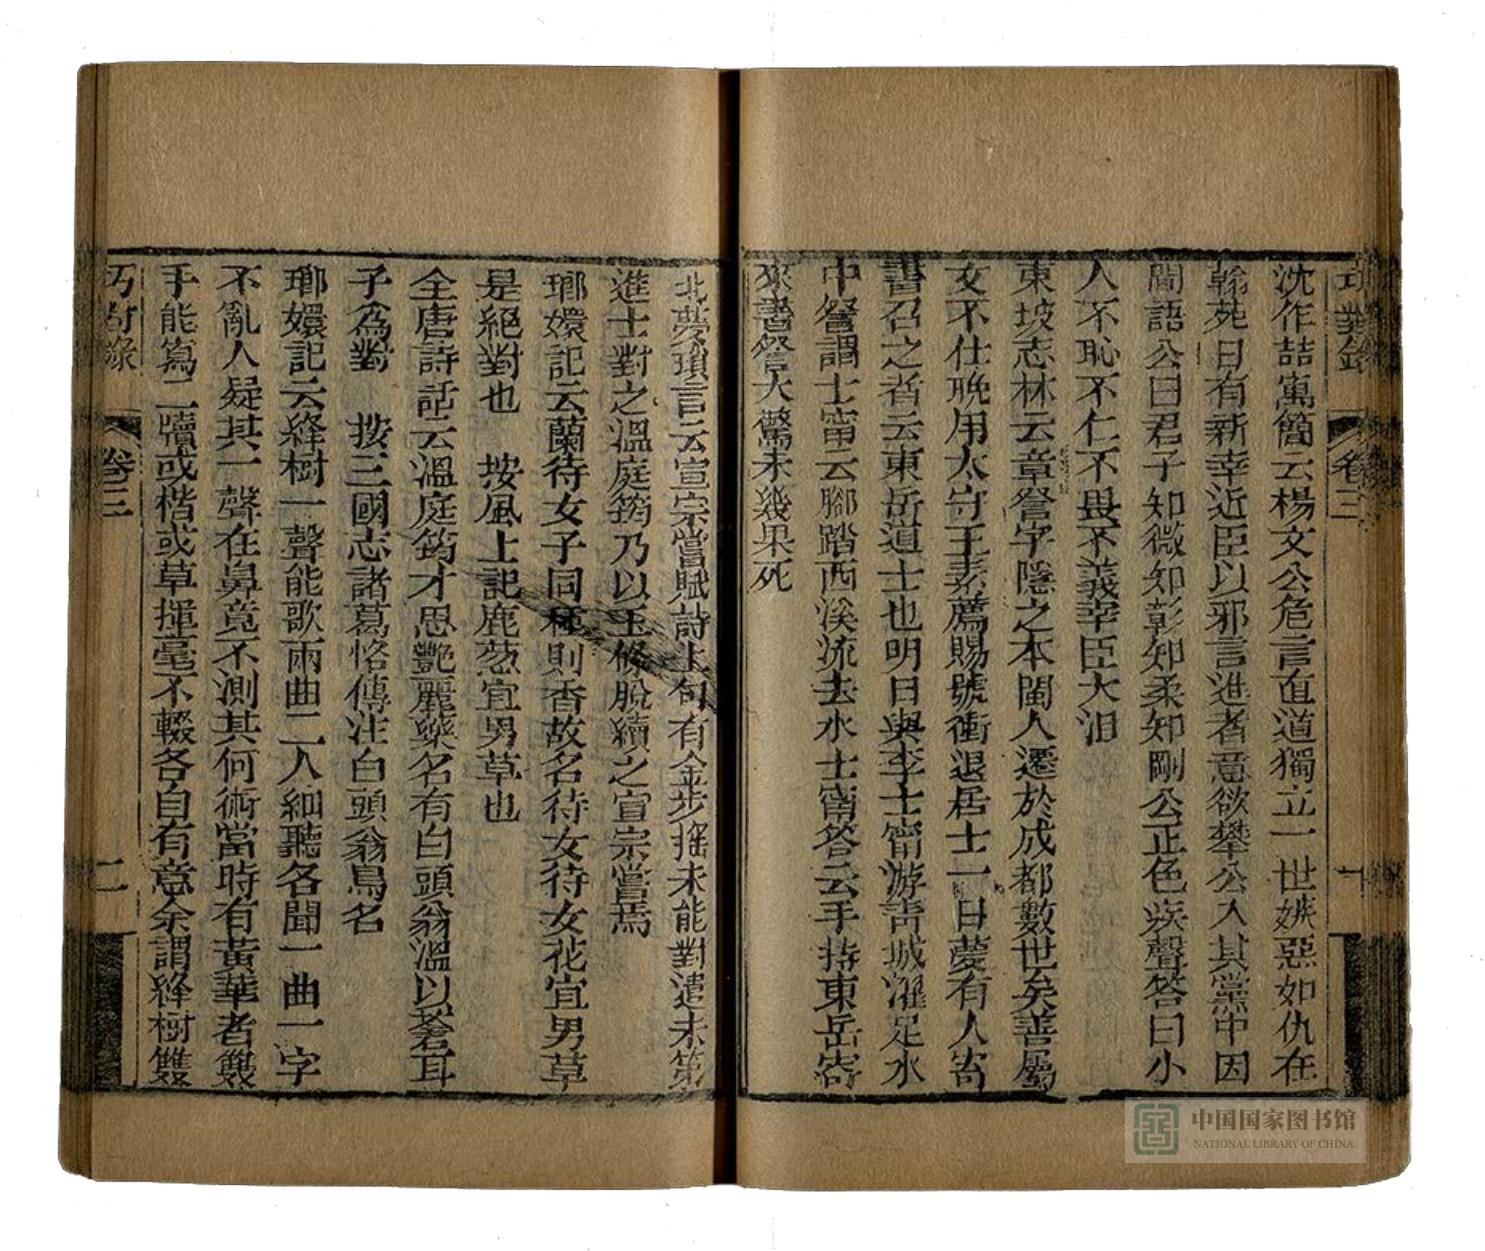 巧對錄 卷三 一
沈作喆寓簡云楊文公危言直道獨立一世嫉惡如仇在
翰苑日有新幸近臣以邪言進者意欲攀公入其黨中因
間語公曰君子知微知彰知柔知剛公正色疾聲答曰小
人不恥不仁不畏不義幸臣大沮
東坡志林云章詧字隱之本閩人遷於成都數世矣善屬
文不仕晚用太守王素薦賜號衝退居士一日夢有人寄
書召之者云東岳道士也明日與李士甯游青城濯足水
中詧謂士甯云腳踏西溪流去水士甯答云手持東岳寄
來書詧大驚未幾果死
北夢瑣言云宣宗嘗賦詩上句有金步搖未能對遣未第
進士對之溫庭筠乃以玉條脫續之宣宗賞焉
瑯嬛記云蘭待女子同種則香故名待女待女花宜男草
是絕對也 按風土記鹿蔥宜男草也
全唐詩話云溫庭筠才思艷麗藥名有白頭翁溫以蒼耳
子為對 按三國志諸葛恪傳注白頭翁鳥名
瑯嬛記云絳樹一聲能歌兩曲二人細聽各聞一曲一字
不亂人疑其一聲在鼻竟不測其何術當時有黃華者雙
手能寫二牘或楷或草揮毫不輟各自有意余謂絳樹雙
巧對錄 卷三 二
中国国家图书馆
NATIONAL LIBRARY OF CHINA